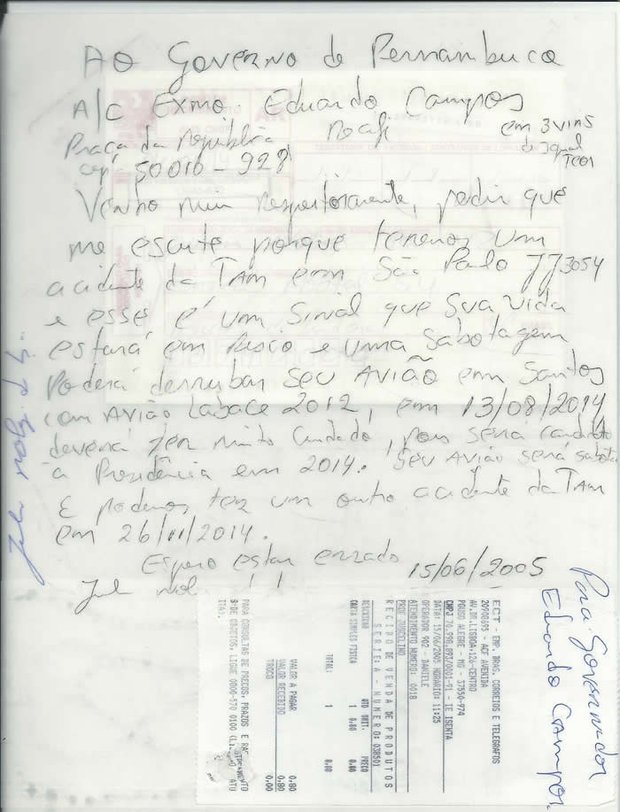 AO Governo de Pernambuco
A/C Exmo. Eduardo Campos
Praça da República Recife
em 3 vias
de igual
Teor
cep 50010-928
Venho mui respeitosamente, pedir que
me escute porque teremos um
acidente da TAM em São Paulo JJ3054
e esse é um sinal que sua vida
estará em Risco e uma sabotagem
Poderá derrubar seu Avião em Santos
com Avião Labace 2012, em 13/08/2014,
deverá ter muito cuidado, pois será candidato
à Presidência em 2014. Seu Avião será sabota
E podemos ter um outro acidente da TAM
em 26/11/2014.
Espero estar errado 15/06/2005
Para Governador
Eduardo Campos
ECT - EMP. BRAS. CORREIOS E TELEGRAFOS
20900695 - ACF AVENIDA
AV.DR.LISBOA,126-CENTRO
POUSO ALEGRE - MG - 37550-974
IE ISENTA
DATA: 15/06/2005 HORARIO: 11:25
OPERADOR 902 - DANIELE
ATENDIMENTO NUMERO: 0018
RECIBO DE VENDA DE PRODUTOS
SERIE: A - NUMERO: 038501
DESCRICAO QTD UNIT. PRECO
CARTA SIMPLES FISICA 1 0.80
TOTAL: 1 0.80
VALOR A PAGAR 0.80
VALOR RECEBIDO 0.80
TROCO 0.00
PARA CONSULTAS DE PRECOS, PRAZOS E RAS
LIGUE 0800-570 0100